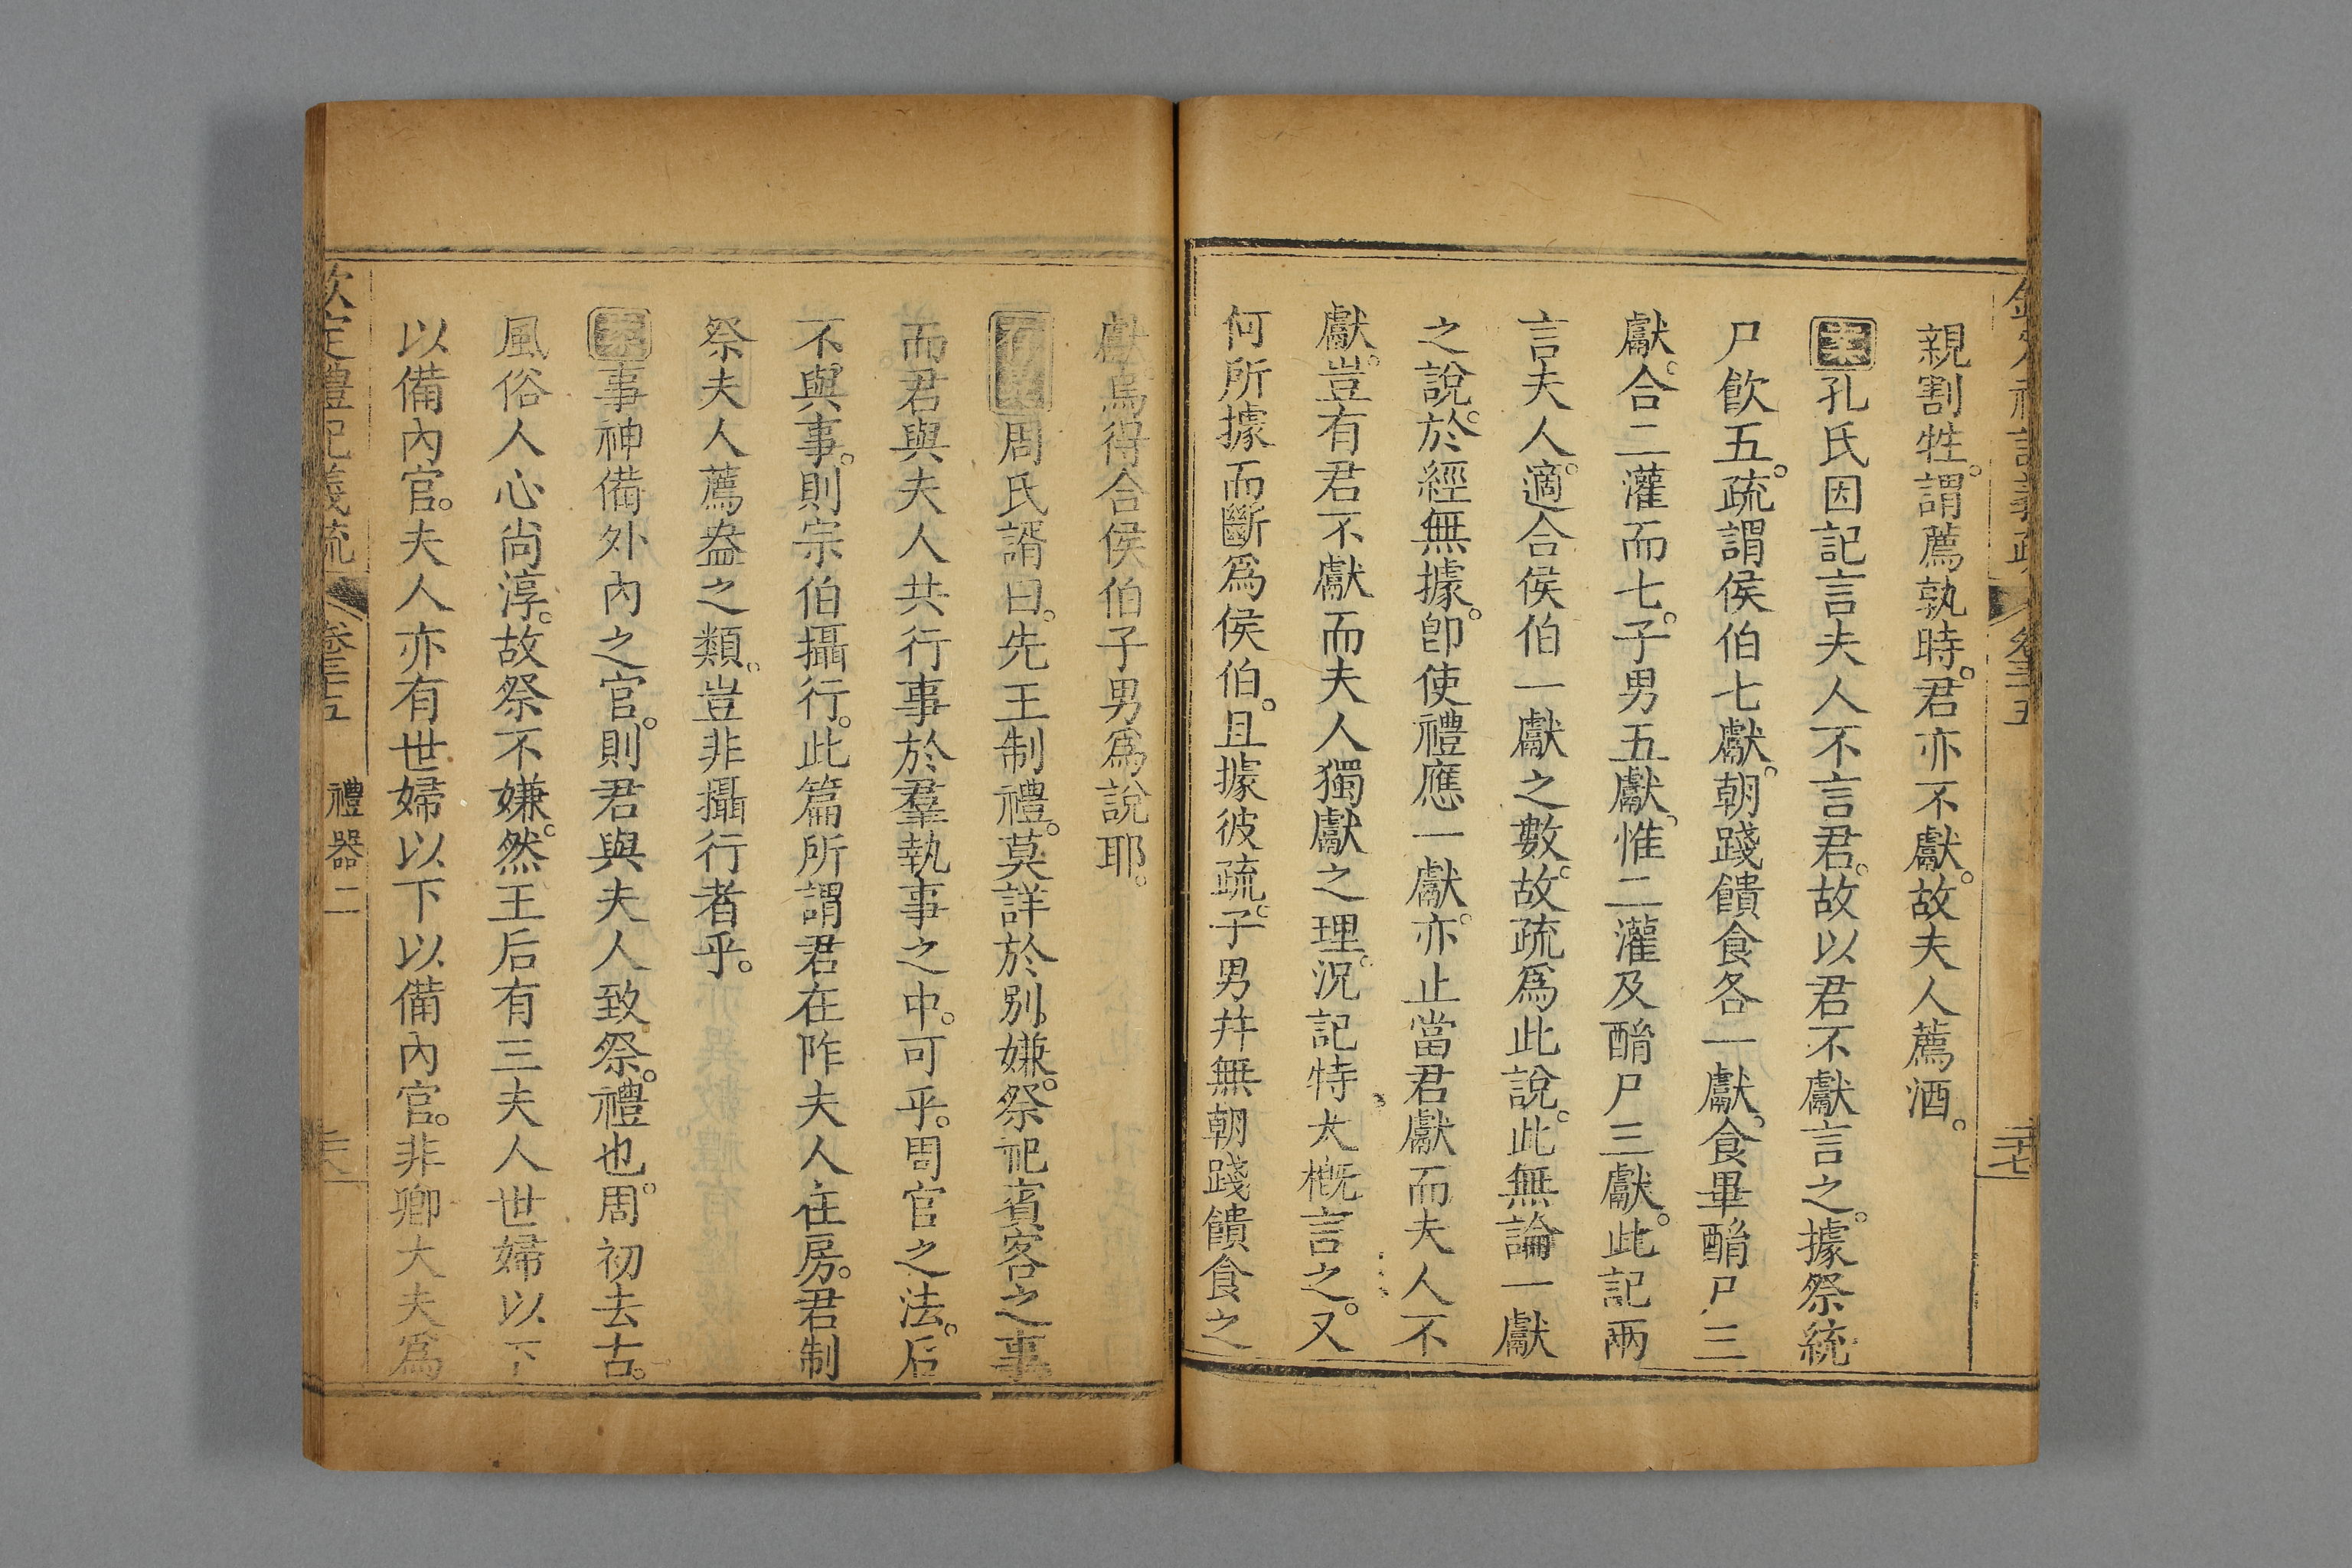 親割牲。謂薦孰時。君亦不獻。故夫人薦酒。
案孔氏因記言夫人不言君。故以君不獻言之。據祭統
尸飮五。疏謂侯伯七獻。朝踐饋食各一獻。食畢酳尸三
獻。合二灌而七。子男五獻。惟二灌及酳尸三獻。此記兩
言夫人。適合侯伯一獻之數。故疏爲此說。此無論一獻
之說。於經無據。卽使禮應一獻。亦止當君獻而夫人不
獻。豈有君不獻而夫人獨獻之理。況記特大概言之。又
何所據而斷爲侯伯。且據彼疏。子男幷無朝踐饋食之
獻。焉得合侯伯子男爲說耶。
周氏諝曰。先王制禮。莫詳於別嫌。祭祀賓客之事
而君與夫人共行事於羣執事之中。可乎。周官之法。后
不與事。則宗伯攝行。此篇所謂君在阼夫人在房。君制
祭夫人薦盎之類。豈非攝行者乎。
案事神備外內之官。則君與夫人致祭。禮也。周初去古。
風俗人心尚淳。故祭不嫌。然王后有三夫人世婦以下
以備內官。夫人亦有世婦以下以備內官。非卿大夫爲
欽定禮記義疏 卷三十五 禮器二